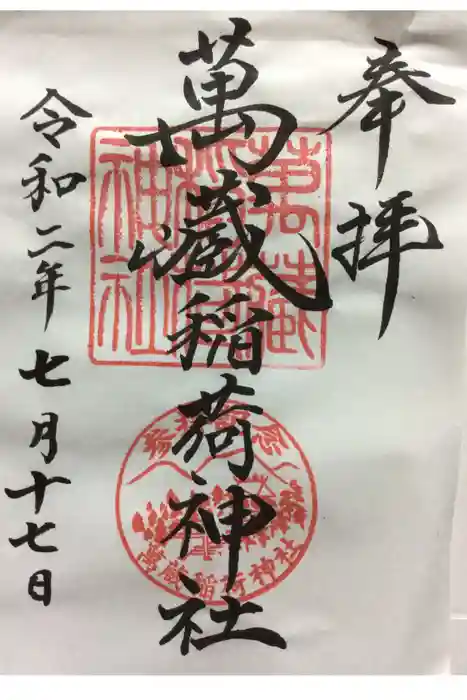 奉拝
萬蔵稲荷神社
令和二年七月十七日
萬蔵稲荷神社
萬蔵稲荷神社